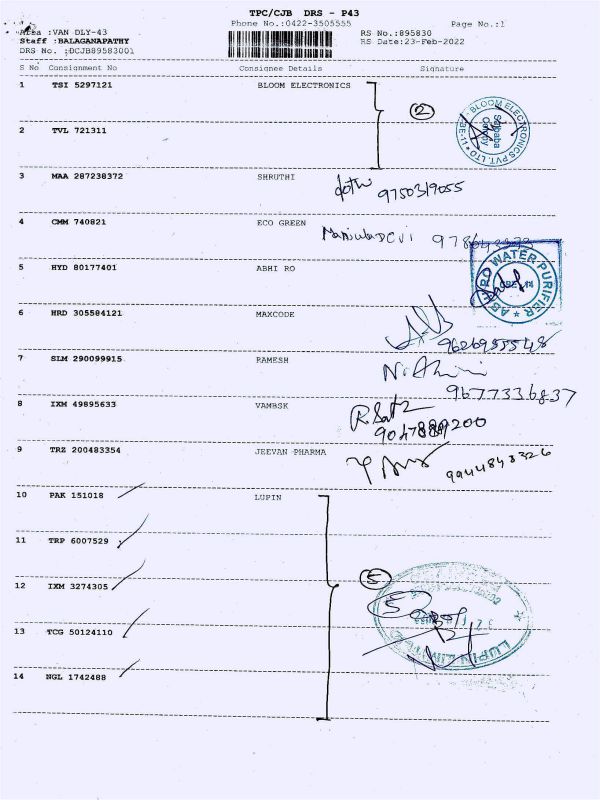 TPC/CJB DRS - P43
Phone No.:0422-3505555 Page No.:1
Area :VAN DLY-43 RS No.:895830
Staff :BALAGANAPATHY RS Date:23-Feb-2022
DRS No. :DCJB89583001
S No Consignment No Consignee Details Signature
1 TSI 5297121 BLOOM ELECTRONICS
2
BLOOM ELECTRONICS PVT. LTD
Saibaba Colony
2 TVL 721311
3 MAA 287238372 SHRUTHI
9750319055
4 CMM 740821 ECO GREEN
ManjulaDevi
5 HYD 80177401 ABHI RO
WATER PURIFIER
6 HRD 305584121 MAXCODE
9626955548
7 SLM 290099915 RAMESH
9677336837
8 IXM 49895633 VAMBSK
9 TRZ 200483354 JEEVAN PHARMA
9944843326
10 PAK 151018 LUPIN
11 TRP 6007529
12 IXM 3274305
5
5
13 TCG 50124110
LUPIN LIMITED
14 NGL 1742488